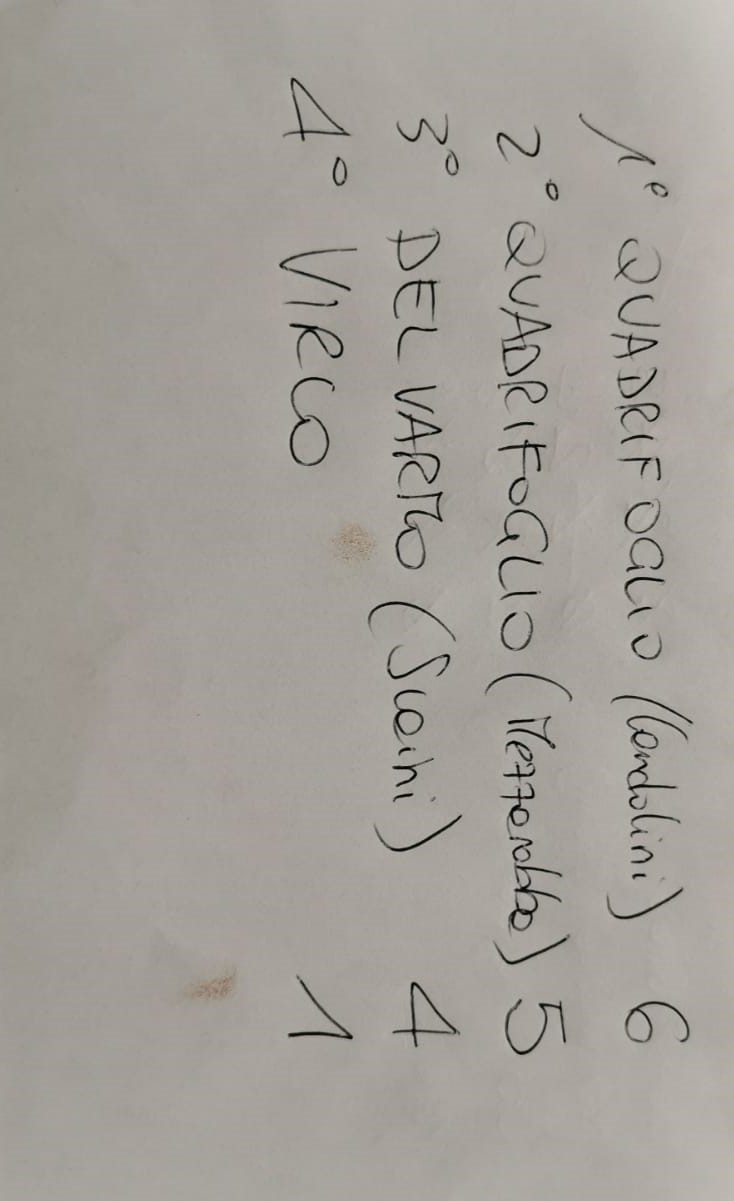 1° QUADRIFOGLIO (Candolini) 6
2° QUADRIFOGLIO (Mezzarobba) 5
3° DEL VARMO (Scaini) 4
4° VIRCO 1